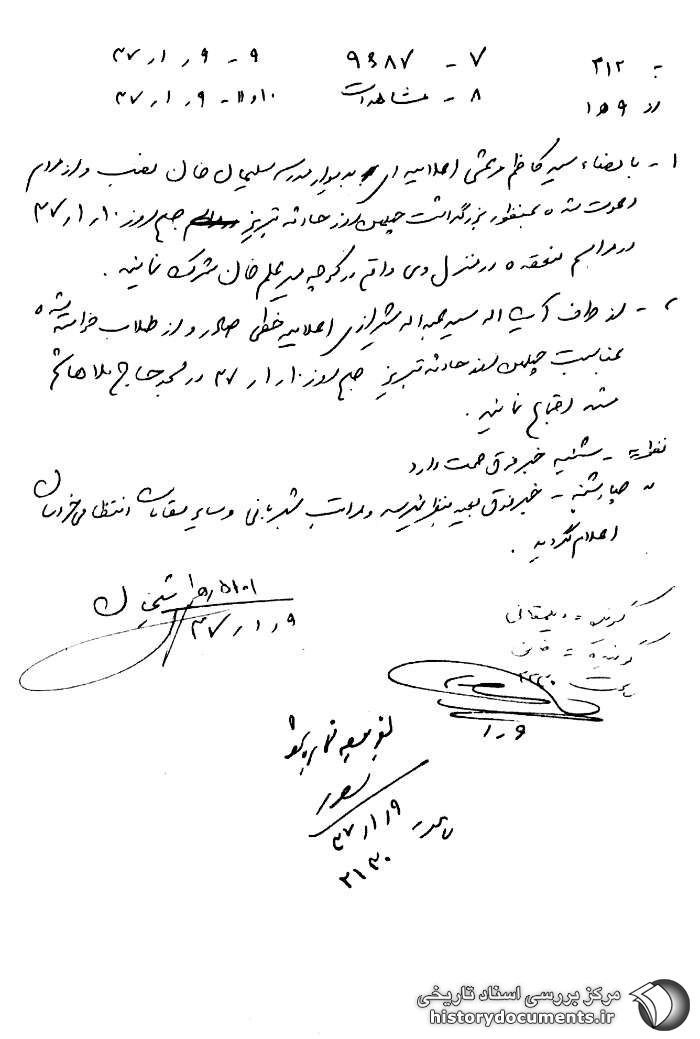 به ۳۱۲ ۷ - ۹ه‍ ۸۷ ۹ - ۹ر۱ر۳۷
از ۹ه‍ ۱ ۸ - مشاهدات ۱۰و۱۱ - ۹ر۱ر۳۷
۱ - با امضاء سید کاظم مرعشی اعلامیه ای به دیوار مدرسه سلیمان خان نصب و از مردم
دعوت شده بمنظور بزرگداشت چهلمین روز حادثه تبریز صبح روز ۱۰ر۱ر۳۷
در مراسم منعقده در منزل وی واقع در کوچه میر علم خان شرکت نمایند .
۲ - از طرف آیت اله سید عبداله شیرازی اعلامیه خطی صادر و از طلاب خواسته شده
بمناسبت چهلمین روز حادثه تبریز صبح روز ۱۰ر۱ر۳۷ در مسجد حاج ملا هاشم
مشهد اجتماع نمایند .
نظریه - شنبه خبر فوق صحت دارد
" چهارشنبه - خبر فوق بعید بنظر نمیرسد و مراتب بشهربانی و سایر مقامات انتظامی خراسان
اعلام گردید .
گوینده =
گیرنده =
ساعت
۹ر۱ر۳۷
۹ر۱
۹ر۱ر۳۷
۲۱۳۰
مرکز بررسی اسناد تاریخی
historydocuments.ir